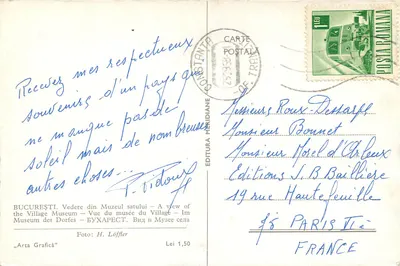 Recevez mes respectueux
souvenirs d'un pays qui
ne manque pas de
soleil mais de nombreuses
autres choses...
P. Vidoux
BUCUREŞTI. Vedere din Muzeul satului — A view of
the Village Museum — Vue du musée du Village — Im
Museum des Dorfes — БУХАРЕСТ. Вид в Музее села
Foto: H. Löffler
„Arta Grafică"
Lei 1,50
EDITURA MERIDIANE
CARTE
POSTALĂ
CONSTANTA
1 LEU
POSTA ROMANA
Messieurs Roux-Dessarps
Monsieur Bonnet
Monsieur Morel d'Arleux
Editions J.B Baillière
19 rue Hautefeuille
75 PARIS VI è
FRANCE